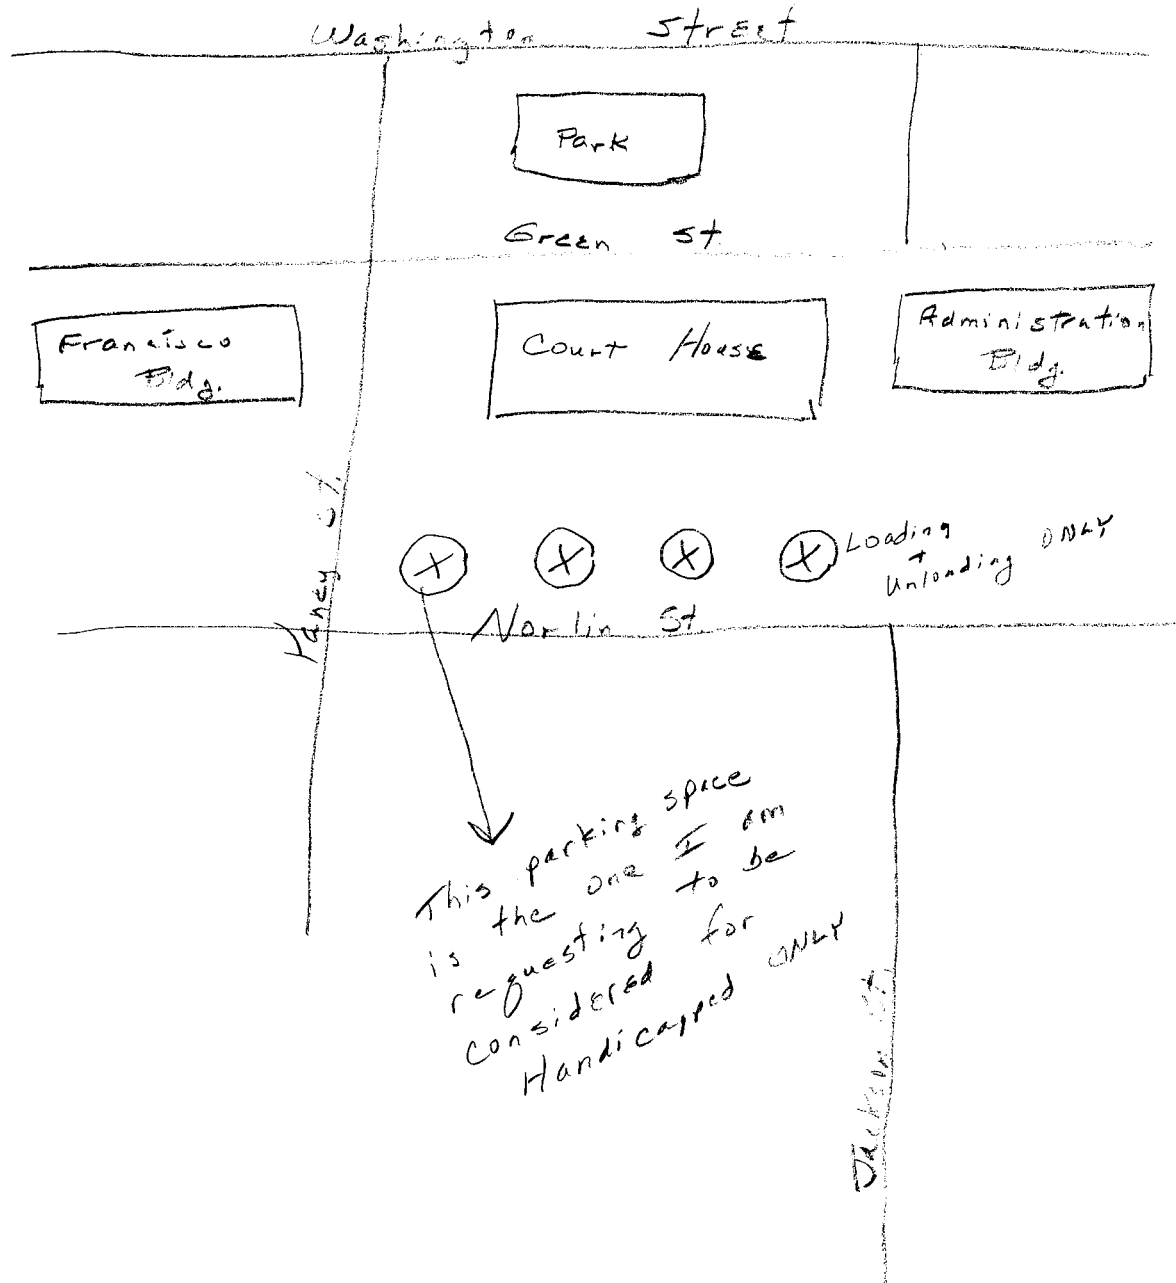 Washington Street
Park
Green St.
Francisco
Bldg.
Court House
Administration
Bldg.
Yancy St.
Loading
+
Unloading ONLY
Norlin St.
This parking space
is the one I am
requesting to be
considered for
Handicapped ONLY
Jackson St.